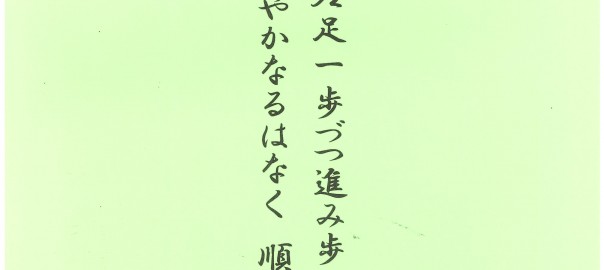 足一歩づつ進み歩
やかなるはなく 順